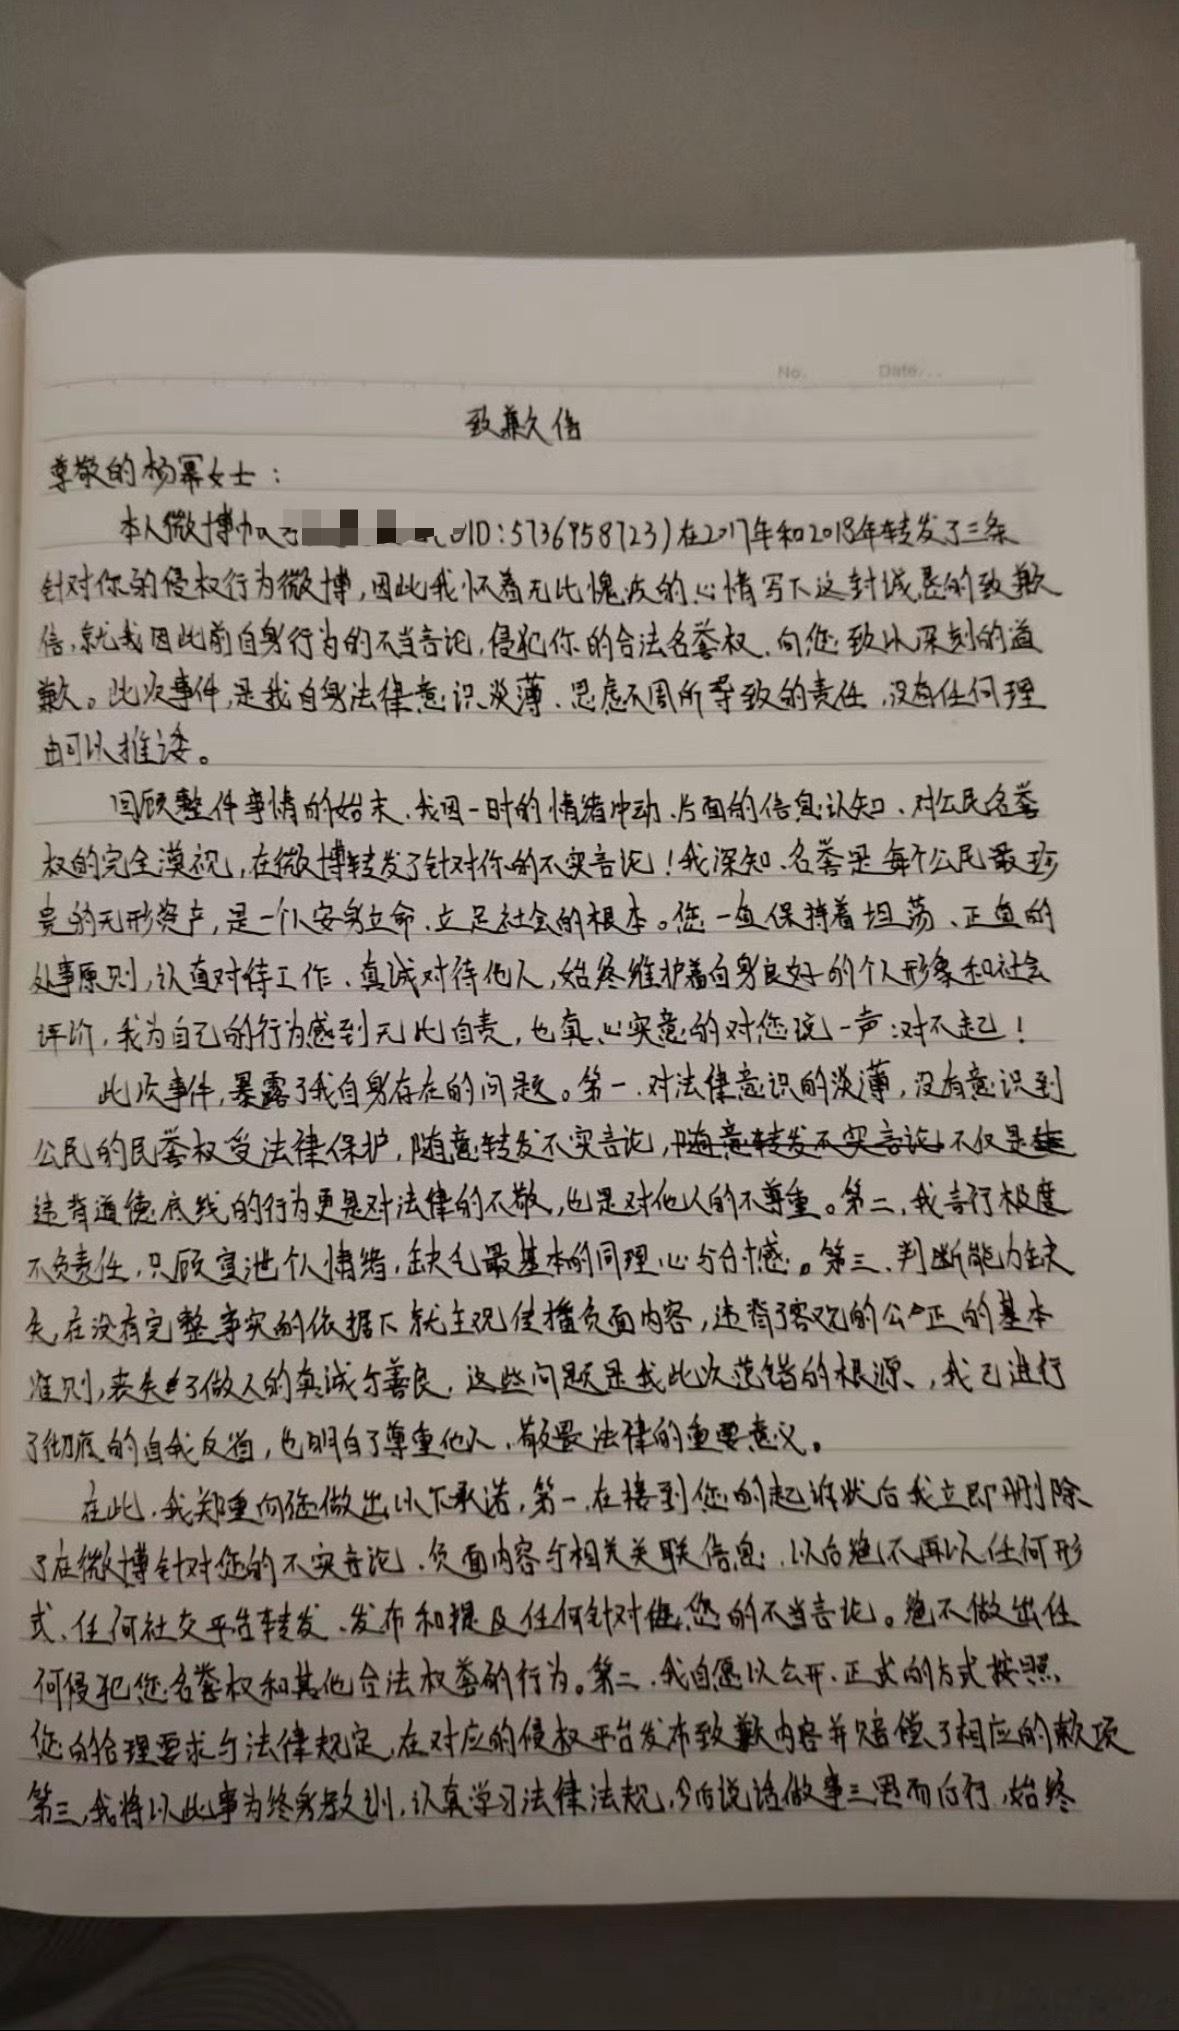 No. Date
致歉信
尊敬的杨幂女士：
本人微博 ID:5736958723)在2017年和2018年转发了三条
针对你的侵权行为微博，因此我怀着无比愧疚的心情写下这封诚恳的致歉
信，就我因此前自身行为的不当言论，侵犯你的合法名誉权、向您致以深刻的道
歉。此次事件，是我自身法律意识淡薄、思虑不周所导致的责任，没有任何理
由可以推诿。
回顾整件事情的始末、我因一时的情绪冲动、片面的信息认知、对公民名誉
权的完全漠视，在微博转发了针对你的不实言论！我深知、名誉是每个公民最珍
贵的无形资产，是一个人安身立命、立足社会的根本。您一直保持着坦荡、正直的
处事原则，认真对待工作、真诚对待他人，始终维护着自身良好的个人形象和社会
评价，我为自己的行为感到无比自责，也真心实意的对您说一声：对不起！
此次事件，暴露了我自身存在的问题。第一、对法律意识的淡薄，没有意识到
公民的民誉权受法律保护，随意转发不实言论，随意转发不实言论不仅是
违背道德底线的行为更是对法律的不敬，也是对他人的不尊重。第二，我言行极度
不负责任，只顾宣泄个人情绪，缺乏最基本的同理心与分寸感。第三、判断能力缺
失，在没有完整事实的依据下就主观传播负面内容，违背了客观的公正的基本
准则，丧失了做人的真诚与善良，这些问题是我此次范错的根源、，我已进行
了彻底的自我反省，也明白了尊重他人、敬畏法律的重要意义。
在此，我郑重向您做出以下承诺，第一、在接到您的起诉状后我立即删除
了在微博针对您的不实言论、负面内容与相关关联信息，以后绝不再以任何形
式、任何社交平台转发、发布和提及任何针对您的不当言论。绝不做出任
何侵犯您名誉权和其他合法权益的行为。第二、我自愿以公开、正式的方式按照
您的合理要求与法律规定，在对应的侵权平台发布致歉内容并赔偿了相应的款项
第三，我将以此事为终身教训，认真学习法律法规，今后说话做事三思而后行，始终